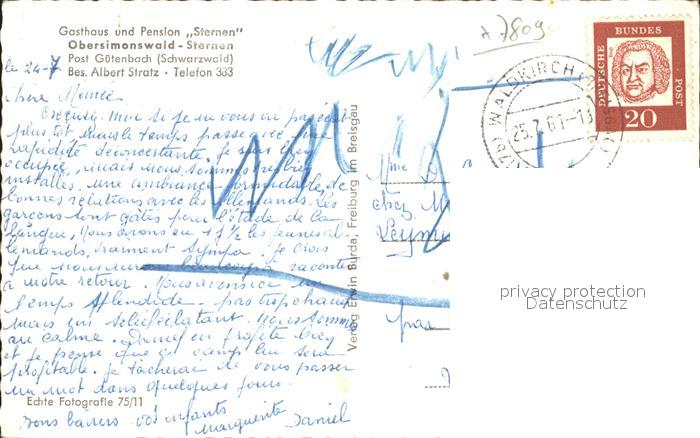 Gasthaus und Pension „Sternen"
Obersimonswald - Sternen
Post Gütenbach (Schwarzwald)
Bes. Albert Stratz · Telefon 333
le 24-7
Chère Mémée
Excusez-moi si je ne vous ai pas écrit
plus tôt mais le temps passe avec une
rapidité déconcertante. Je suis très
occupée, mais nous sommes très bien
installés, une ambiance formidable, de
bonnes relations avec les allemands. Les
garçons sont gâtés pour l'étude de la
langue, nous avons eu 1 h ½ les jeunes al-
lemands, vraiment sympa. Je crois
que nous aurons beaucoup à raconter
à notre retour. Nous avons ici un
temps splendide - pas trop chaud
mais un soleil éclatant. Nous sommes
au calme. Daniel en profite bien
et je pense que ce camp lui sera
profitable. Je tâcherai de vous passer
un mot dans quelques jours.
Echte Fotografie 75/11
Bons baisers vos enfants
Marguerite Daniel
Verlag Erwin Burda, Freiburg im Breisgau
+ 7809
WALDKIRCH (
25.7.61-1
DEUTSCHE BUNDES POST
20
Mme
chez M
Leym
par
privacy protection
Datenschutz